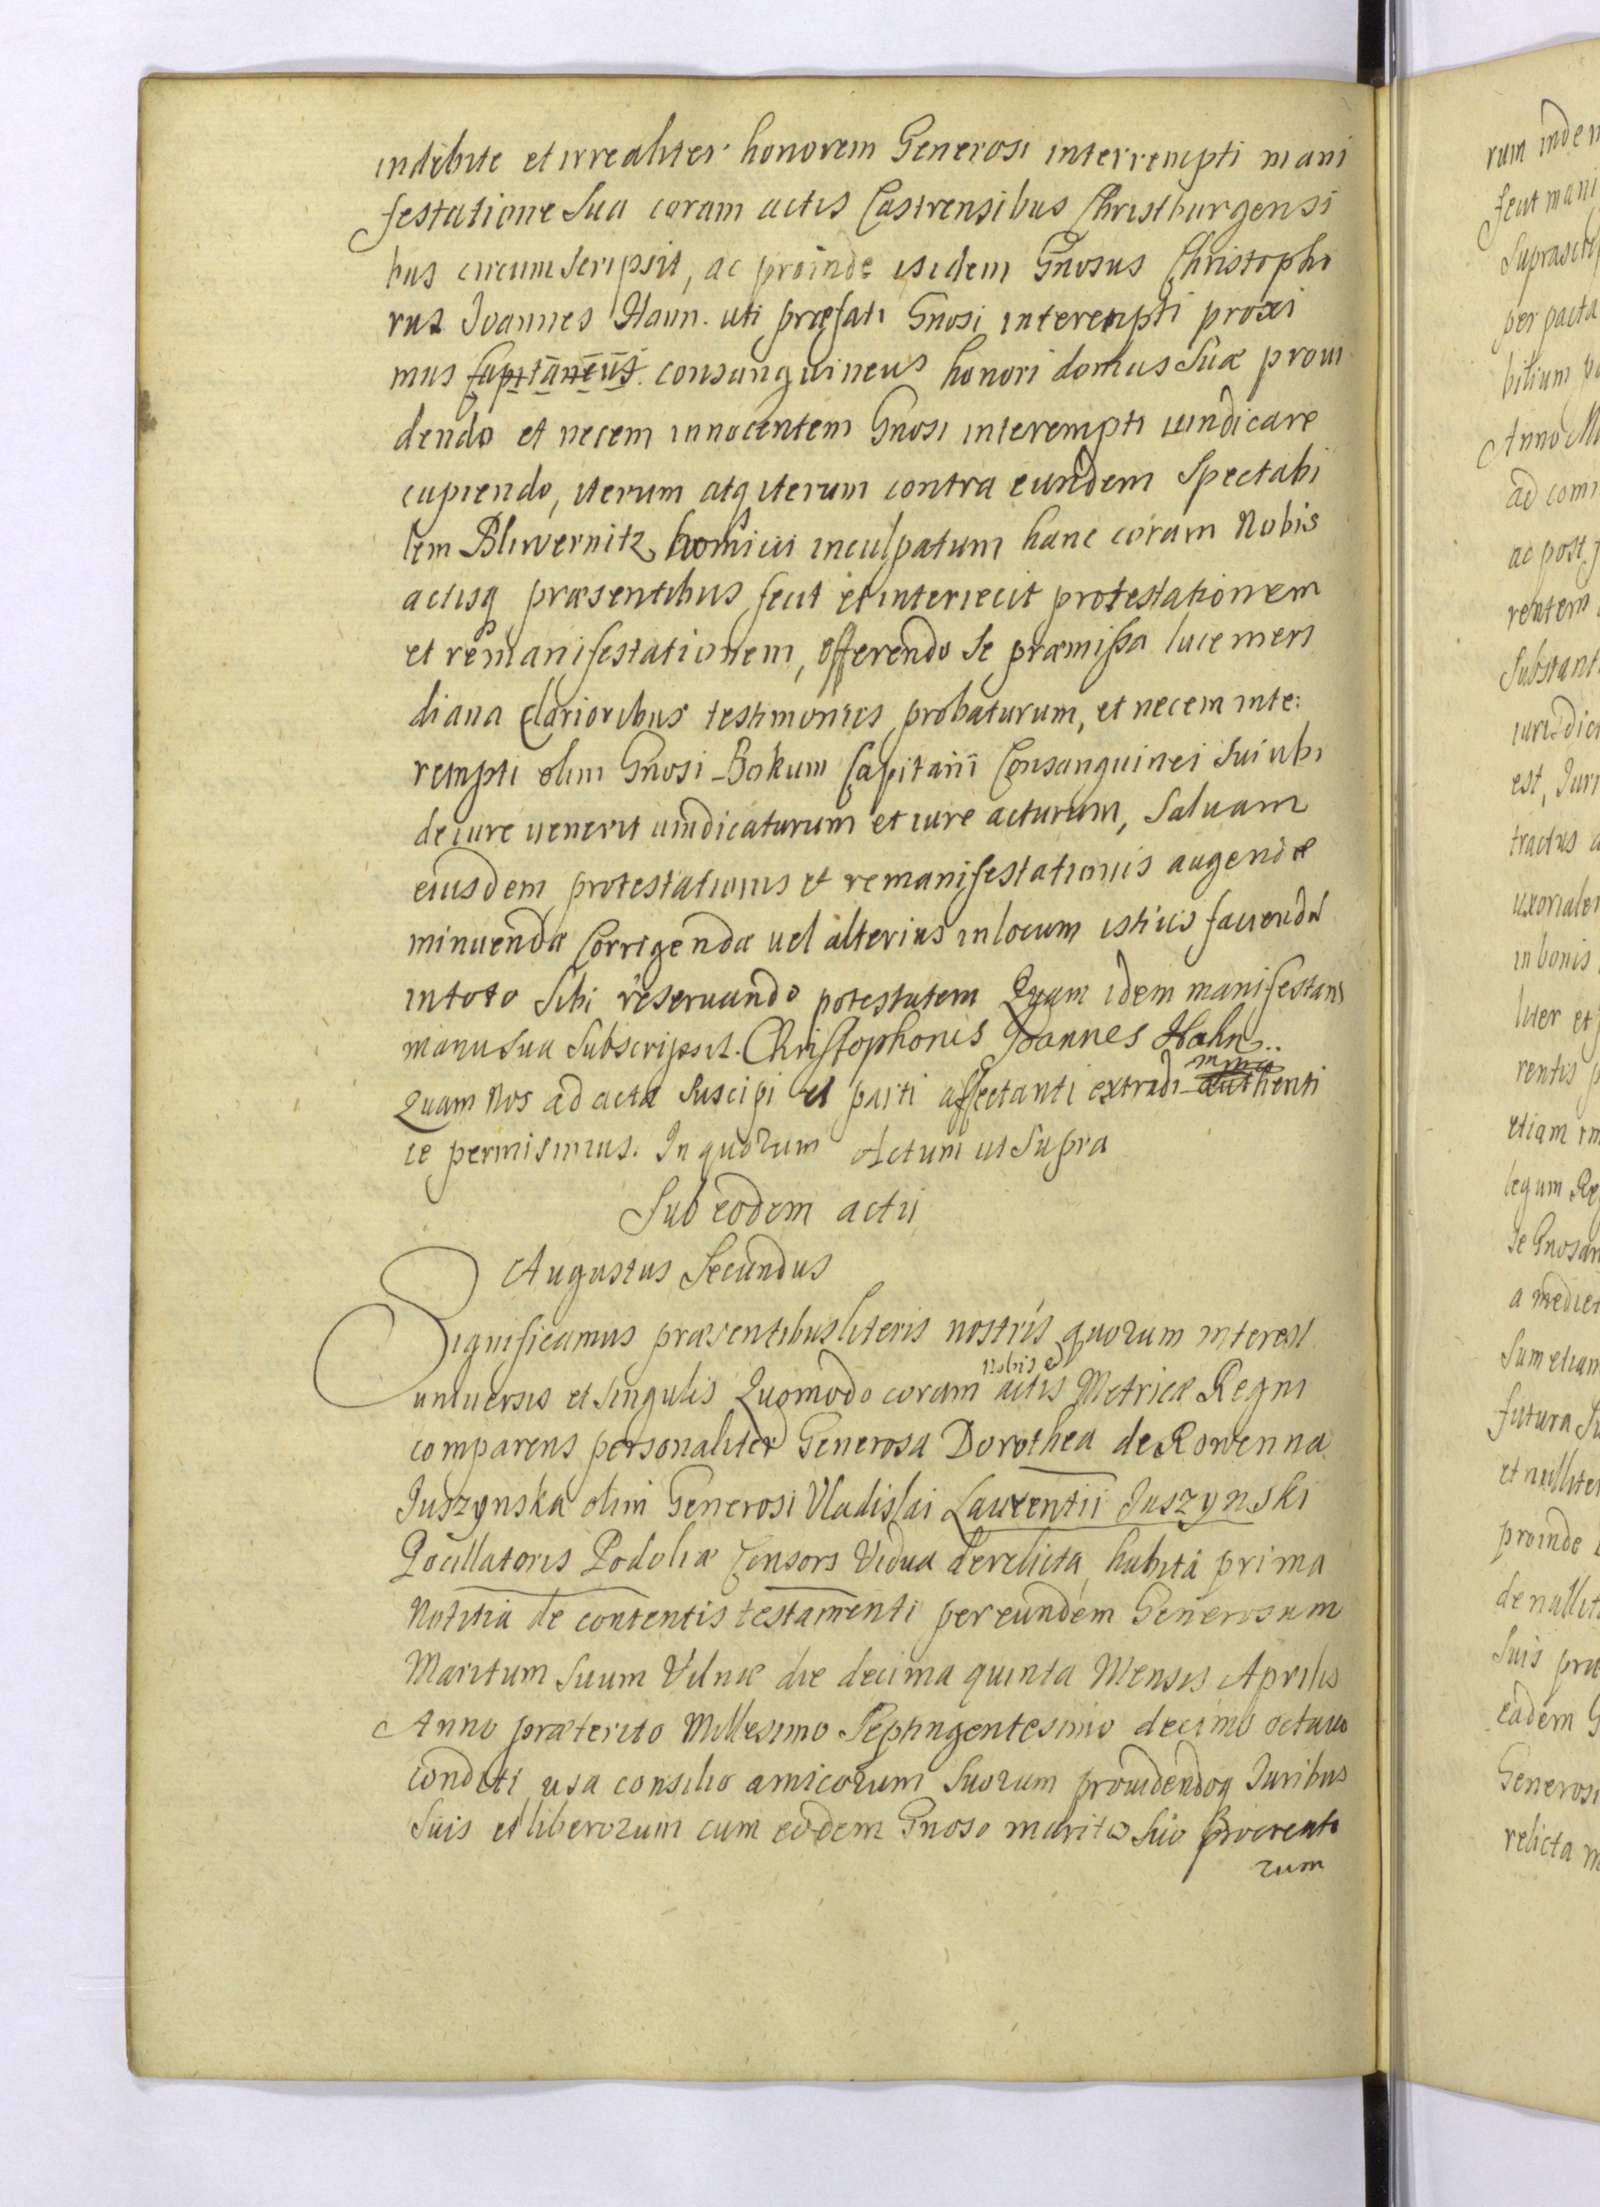 indebite et irrealiter honorem Generosi interrempti mani
festatione Sua coram actis Castrensibus Christburgensi
bus circumscripsit, ac proinde isidem Gnosus Christopho
rus Joannes Haun. uti præfati Gnosi interempti proxi
mus Capitaneus consanguineus honori domus Suæ proui
dendo et necem innocentem Gnosi interempti uindicare
cupiendo, iterum atq iterum contra eundem Spectabi
lem Bliwernitz homicii inculpatum hanc coram Nobis
actisq præsentibus fecit et interiecit protestationem
et remanifestationem, offerendo se præmissa luce meri
diana clarioribus testimoniis probaturum, et necem inte:
rempti olim Gnosi Bokum Capitanī Consanguinei Sui ubi
de iure uenerit uindicaturum et iure acturum, Saluam
eiusdem protestationis et remanifestationis augendæ
minuendæ Corrigendæ uel alterius in locum istius faciendæ
in toto Sibi reseruando potestatem Quam idem manifestans
manu Sua Subscripsit. Christophorus Joannes Hahn..
mma
Quam Nos ad acta Suscipi et parti affectanti extradi authenti
ce permisimus. In quorum Actum ut Supra
Sub eodem actu
Augustus Secundus
Significamus præsentibus literis nostris quorum interest
nobis et
uniuersis et Singulis Quomodo coram actis Metricæ Regni
comparens personaliter Generosa Dorothea de Rowenna
Juszynska olim Generosi Vladislai Laurentii Juszynski
Pocillatoris Podoliæ Consors Vidua derelicta, habita prima
Notitia de contentis testamenti per eundem Generosum
Maritum Suum Vilnæ die decima quinta Mensis Aprilis
Anno præterito Millesimo Septingentesimo decimo octauo
conditi, usa consilio amicorum Suorum prouidendoq Juribus
Suis et liberorum cum eodem Gnoso marito Suo procreato
rum